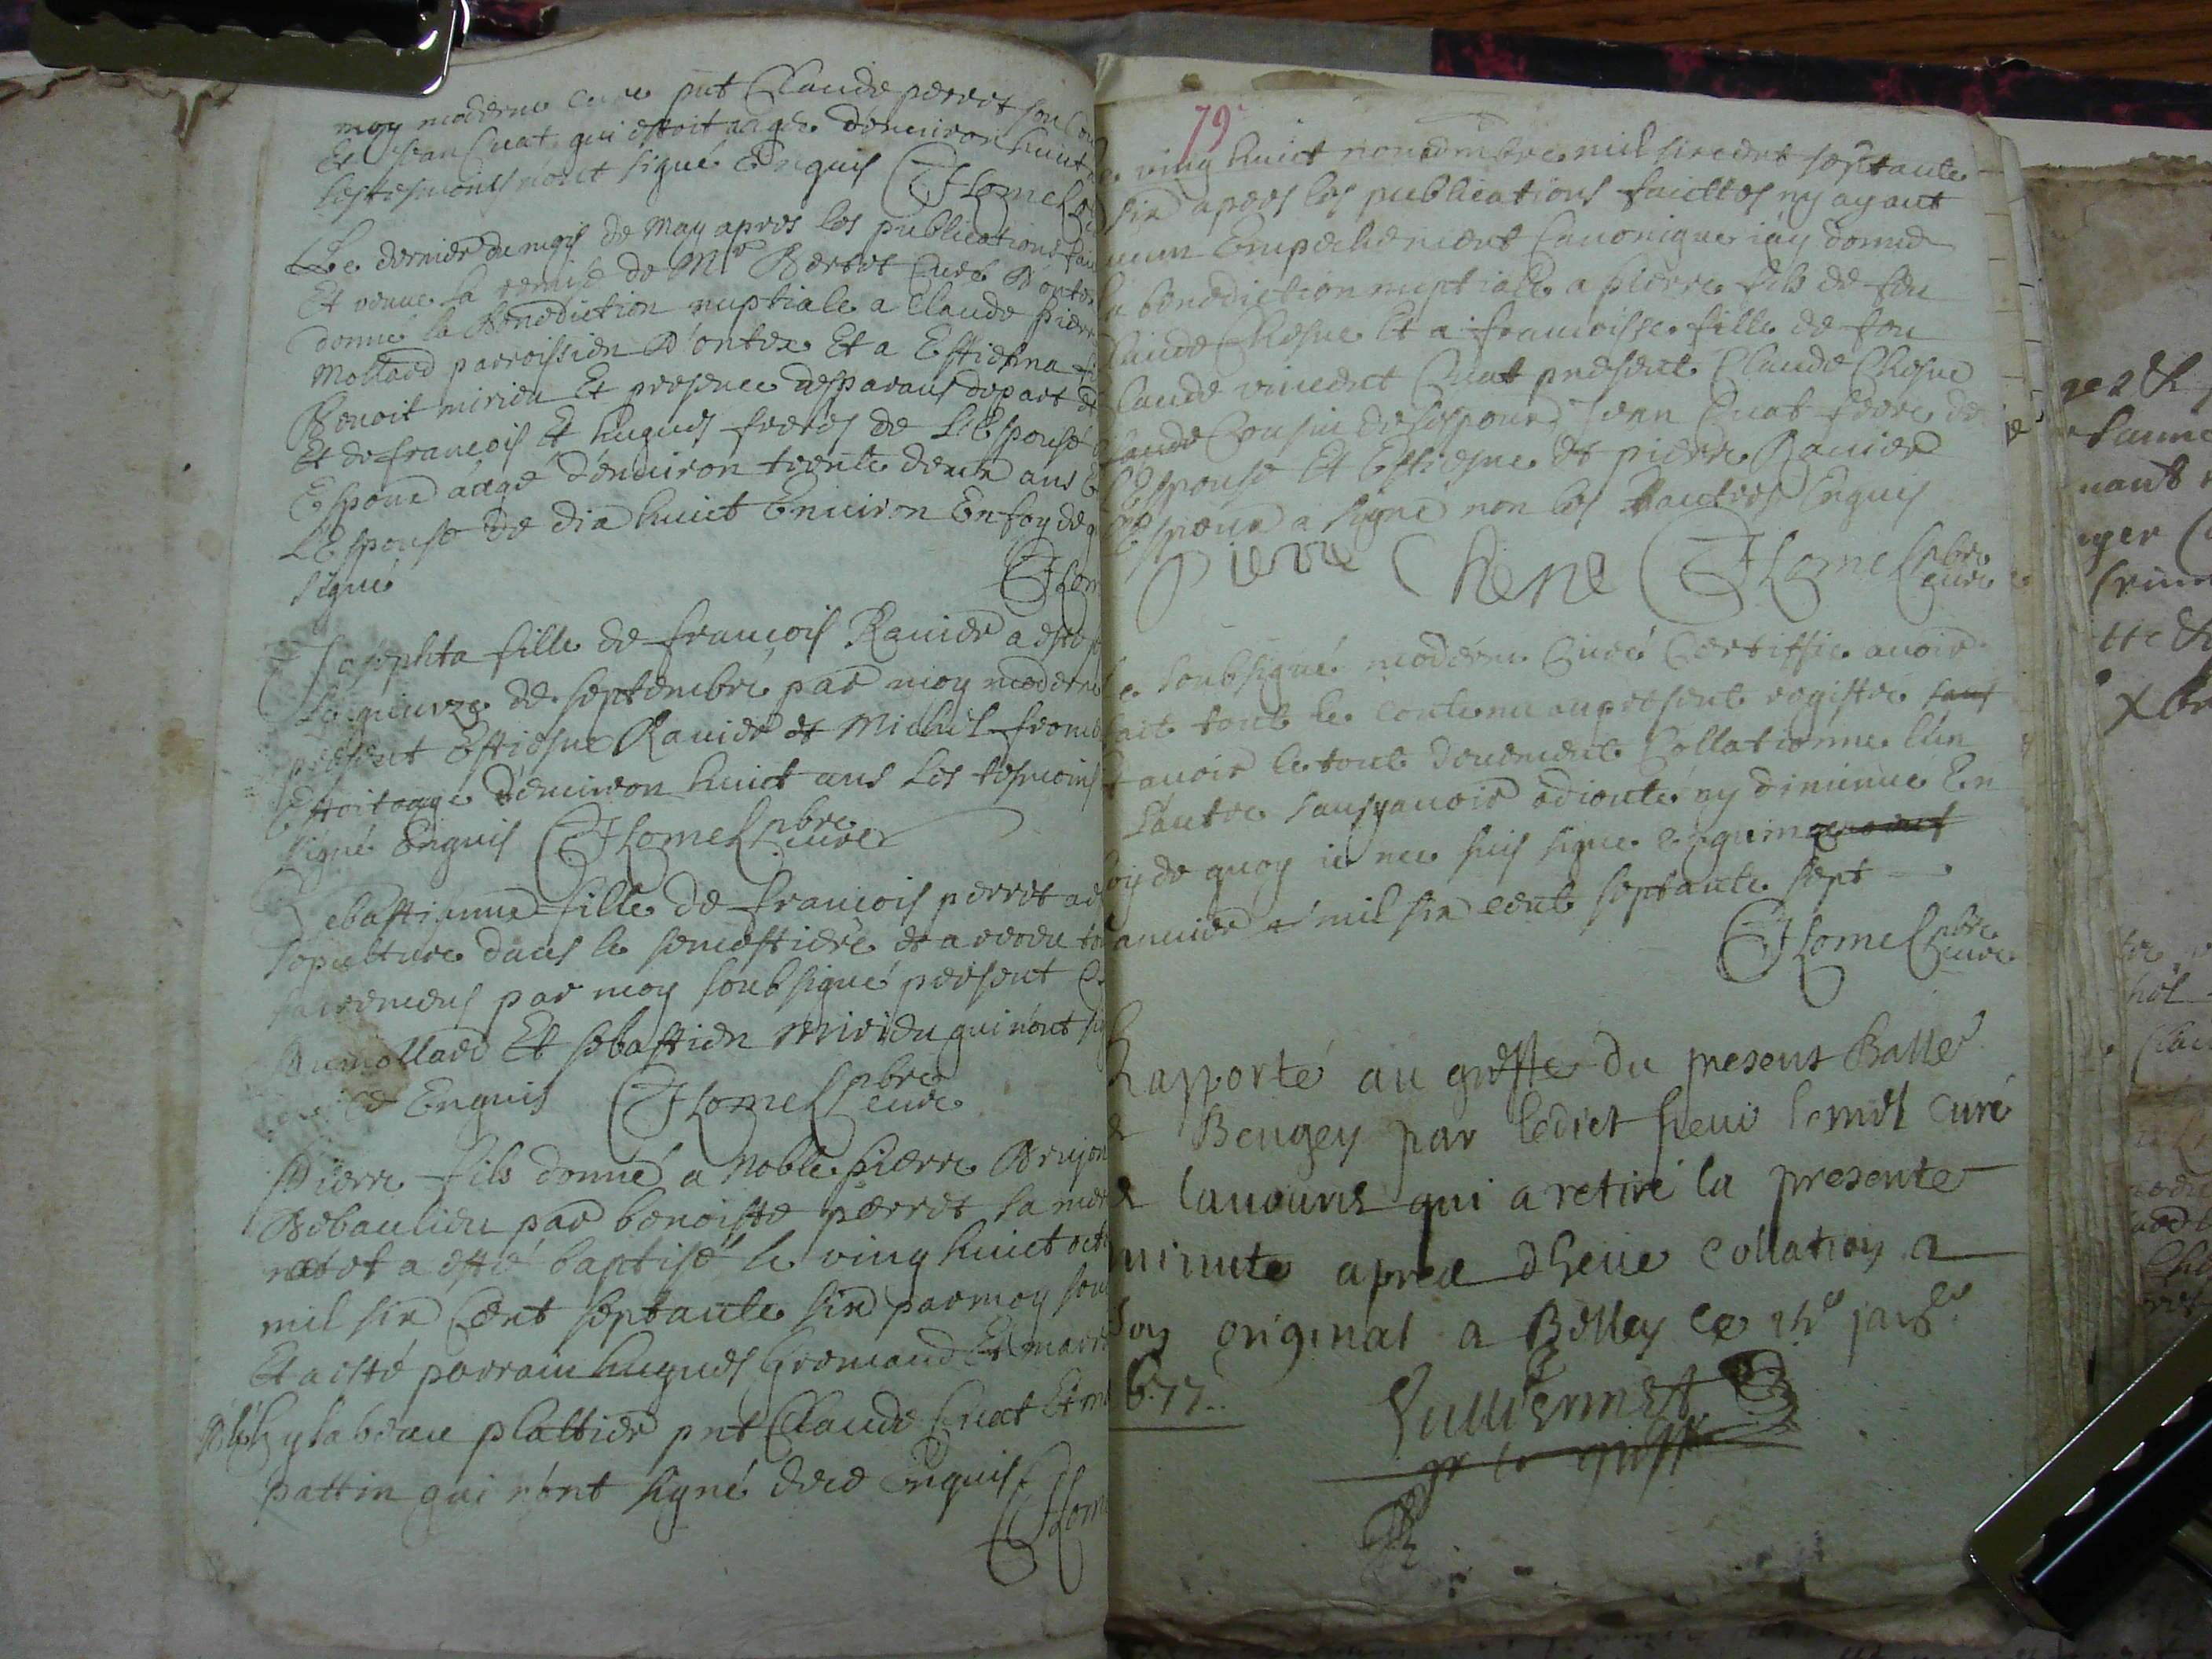 moy moderne curé pnt Claude perret son
Et Jean Cuat qui estoit aagée denuiron huict
Les tesmoins n'ont signé Enquis Lomel
Le dernier du mois de May apres les publications
Et veue la remise de Mre Bertet Curé D'ontex
donné la Benediction nuptiale a Claude pierre
Mollard parroissien D'ontex Et a Estienna
Benoit mirieu Et presence desparans depart
Et de francois Et hugues freres de L'Espouse
Espoux aagé d'enuiron trente deux ans
L'Espouse de dix huict Enuiron En foy de
signé
Lom
Josephta fille de françois Rauier a esté
le quinze de septembre par moy moderne
present Estiesne Rauier et Michel
Estoit aagé d'enuiron huict ans Les tesmoins
signé Enquis Lomel pbre
curé
Sebastianne fille de francois perret a
sepulture dans le semestiere et a receu
sacremens par moy soubsigné present
Dumollard Et sebastien mirieu qui n'ont
Enquis Lomel pbre
curé
Pierre fils donné a Noble pierre
Debaulieu par benoiste perret sa mere
a esté baptisé le ving huict oct
mil six Cent septante six par moy
Et a esté parrain hugues Gromand Et marr
ysabeau plattier pnt Claude Cuat Et
pattin qui n'ont signé Enquis
Lom
79
ving huict nouembre mil six cent septante
six apres les publications faictes ny ayant
Empechement Canonique j'ay donné
la benediction nuptiale a pierre fils de feu
Claude Chesne Et a francoisse fille de feu
Claude vincent Cuat present Claude Chesne
Cousin de L'espoux Jean Cuat frere de
L'Espouse Et Estiesne et pierre Rauier
L'Espoux a signé non les autres Enquis
Pierre Chene Lomel pbre
curé
Je soubsigné moderne Curé Certiffie auoir
fait tout le contenu au present registre sauf
Et auoir le tout deuement Collationné l'un
L'autre sans y auoir adjouté ny diminué En
foy de quoy je me suis signé
januier mil six cent septante sept
Lomel pbre
curé
Rapporté au greffe du present Balle
de Beugey par ledict sieur lomel curé
de lauours qui a retiré la presente
minute apres dheue Collation a
son original a Belley ce janer
677..